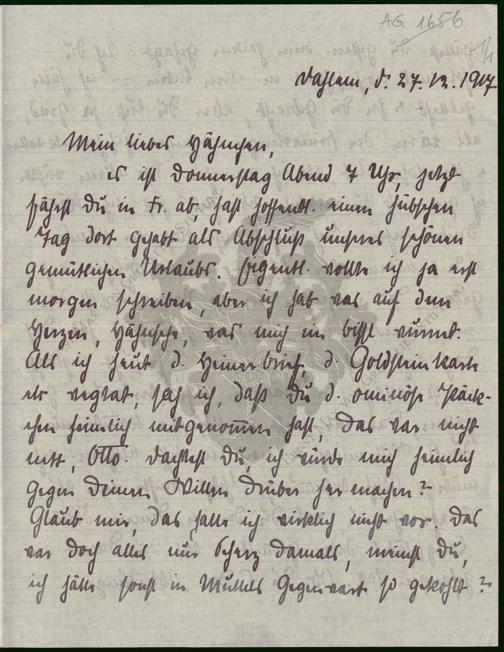 AG 1656
1/1
Dahlem, d. 27.12.1917
Mein liebes Hähnchen,
es ist Donnerstag Abend 7 Uhr, jetzt
fährst Du in Fr. ab, hast hoffentl. einen hübschen
Tag dort gehabt als Abschluß unseres schönen
gemütlichen Urlaubs. Eigentl. wollte ich ja erst
morgen schreiben, aber ich hab was auf dem
Herzen, Hähnche, was mich ein bissl wurmt.
Als ich heut d. Heinerbrief, d. Goldsteinkarte
etc weglat, sah ich, daß Du d. ominöse Päck-
chen heimlich mitgenommen hast, das war nicht
nett, Otto. Dachtest Du, ich würde mich heimlich
gegen Deinen Willen drüber her machen?
Glaub mir, das hatte ich wirklich nicht vor. Das
war doch alles nur Scherz damals, meinst Du,
ich hätte sonst in Muttels Gegenwart so gekohlt?